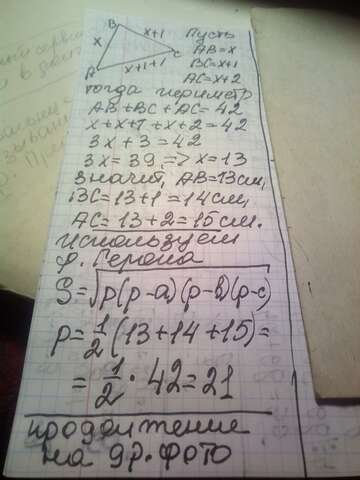 B
x+1
x
A
C
x+1+1
Пусть
AB=x
BC=x+1
AC=x+2
тогда периметр
AB+BC+AC=42
x+x+1+x+2=42
3x+3=42
3x=39 => x=13
значит, AB=13см,
BC=13+1=14см,
AC=13+2=15см.
используем
ф. Герона
S=√p(p-a)(p-b)(p-c)
p=1/2(13+14+15)=
=1/2·42=21
продолжение
на др. фото